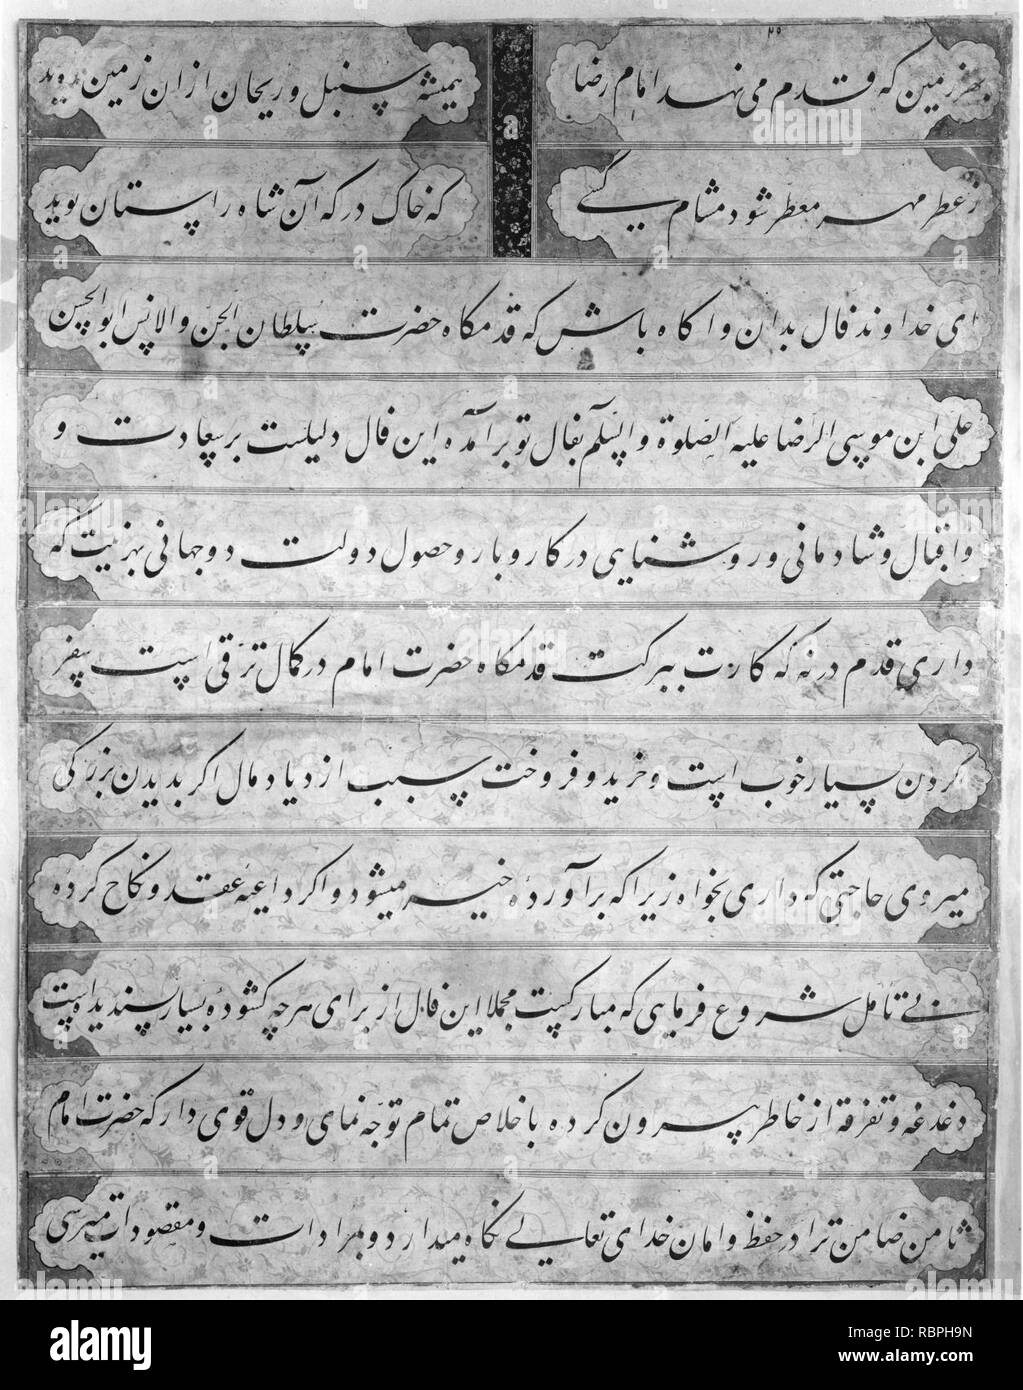 بهر زمین که قدم می نهد امام رضا
همیشه سنبل و ریحان ازان زمین روید
ز عطر مهر معطر شود مشام کسی
که خاک درکه آن شاه راستان بوید
ای خداوند فال بدان و اکاه باش که قدمکاه حضرت سلطان الجن والانس ابوالحسن
علی ابن موسی الرضا علیه الصلوة والسلم بفال تو برآمده این فال دلیلست بر سعادت و
و اقبال و شادمانی و روشنایی در کار و بار و حصول دولت دوجهانی بهر نیت که
داری قدم درنه که کارت ببرکت قدمکاه حضرت امام در کمال ترقی است سفر
کردن بسیار خوب است و خرید و فروخت سبب ازدیاد مال اکر بدیدن بزرکی
میروی حاجتی که داری بخواه زیرا که برآورده خیر میشود و اکر داعیه عقد و نکاح کرده
بی تأمل شروع فرمایی که مبارکست مجملا این فال از برای هرچه کشوده بسیار پسندیده است
دغدغه و تفرقه از خاطر بیرون کرده باخلاص تمام توجه نمای و دل قوی دار که حضرت امام
ثامن ضامن ترا در حفظ و امان خدای تعالی نکاه میدارد و بمرادات و مقصودات میرسی
alamy
Image ID: RBPH9N
www.alamy.com